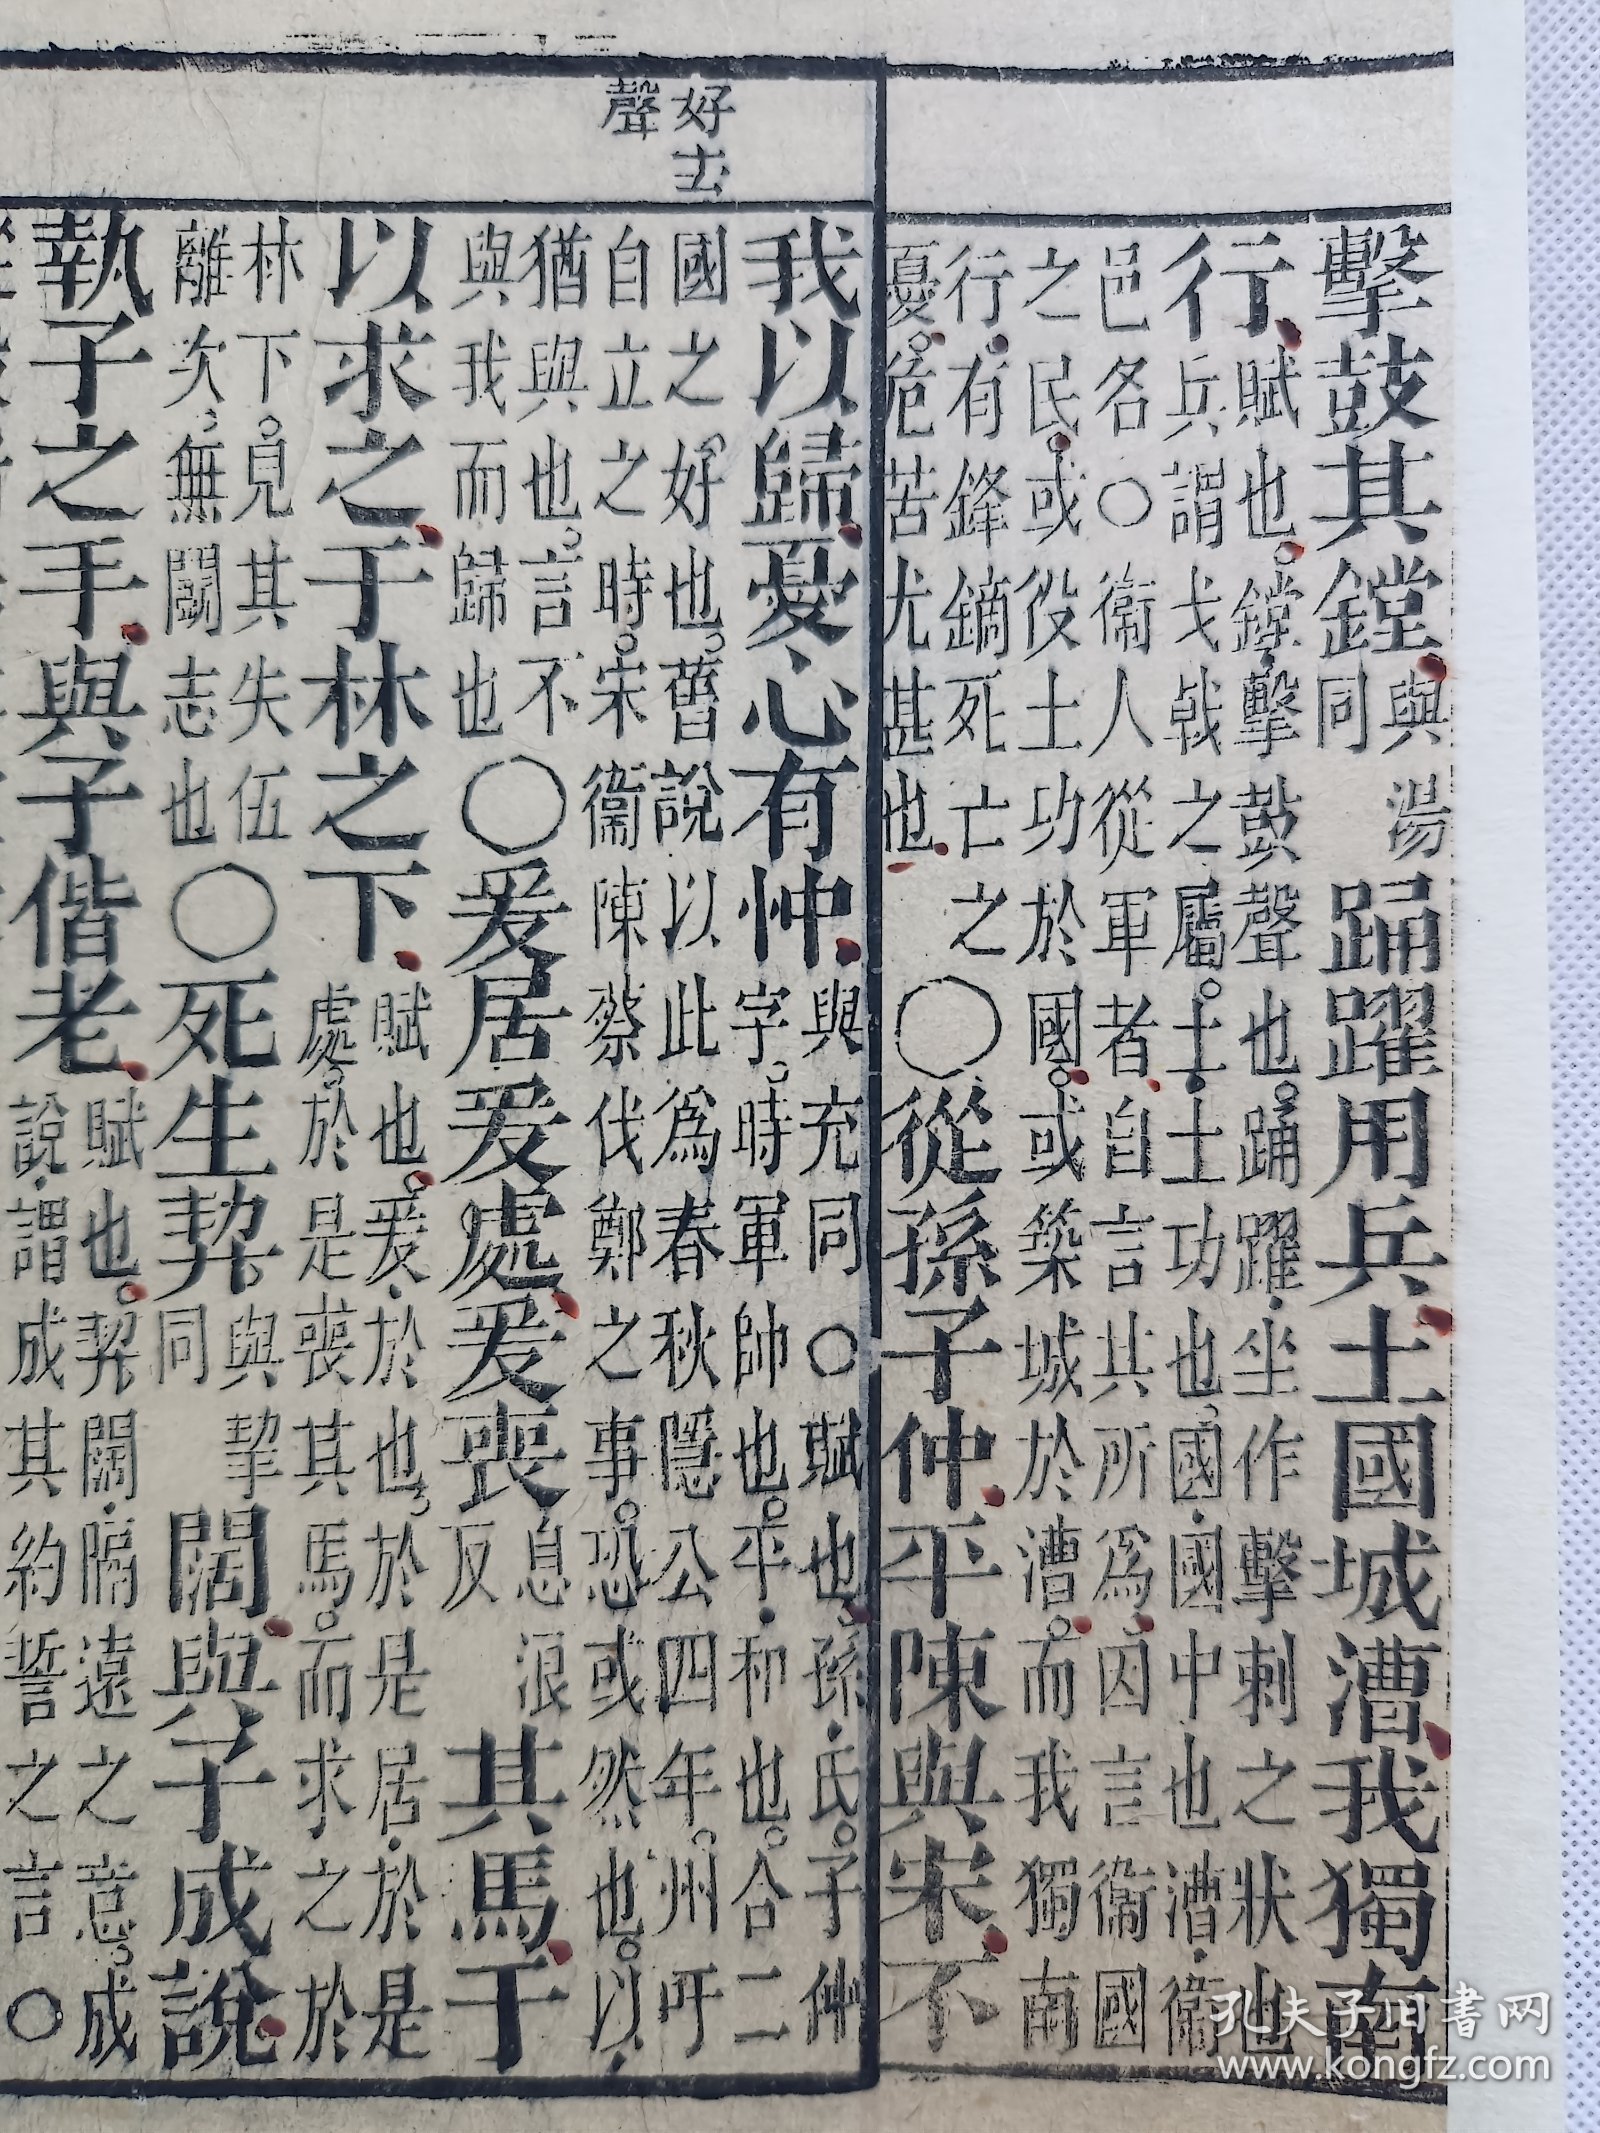 好去
聲
擊鼓其鏜
與湯
同
踊躍用兵土國城漕我獨南
行
賦也鏜擊鼓聲也踊躍坐作擊刺之狀也
兵謂戈戟之屬土土功也國國中也漕衛
邑名○衛人從軍者自言其所為因言衛國
之民或役土功於國或築城於漕而我獨南
行有鋒鏑死亡之
憂危苦尤甚也
○從孫子仲平陳與宋不
我以歸憂心有忡
與充同○賦也孫氏子仲
字時軍帥也平和也合二
國之好也舊說以此為春秋隱公四年州吁
自立之時宋衛陳蔡伐鄭之事恐或然也以
猶與也言不
與我而歸也
○爰居爰處爰喪
息浪
反
其馬于
以求之于林之下
賦也爰於也於是居於是
處於是喪其馬而求之於
林下見其失伍
離次無鬭志也
○死生契
與挈
同
闊與子成說
執子之手與子偕老
賦也契闊隔遠之意成
說謂成其約誓之言○
孔夫子旧书网
www.kongfz.com